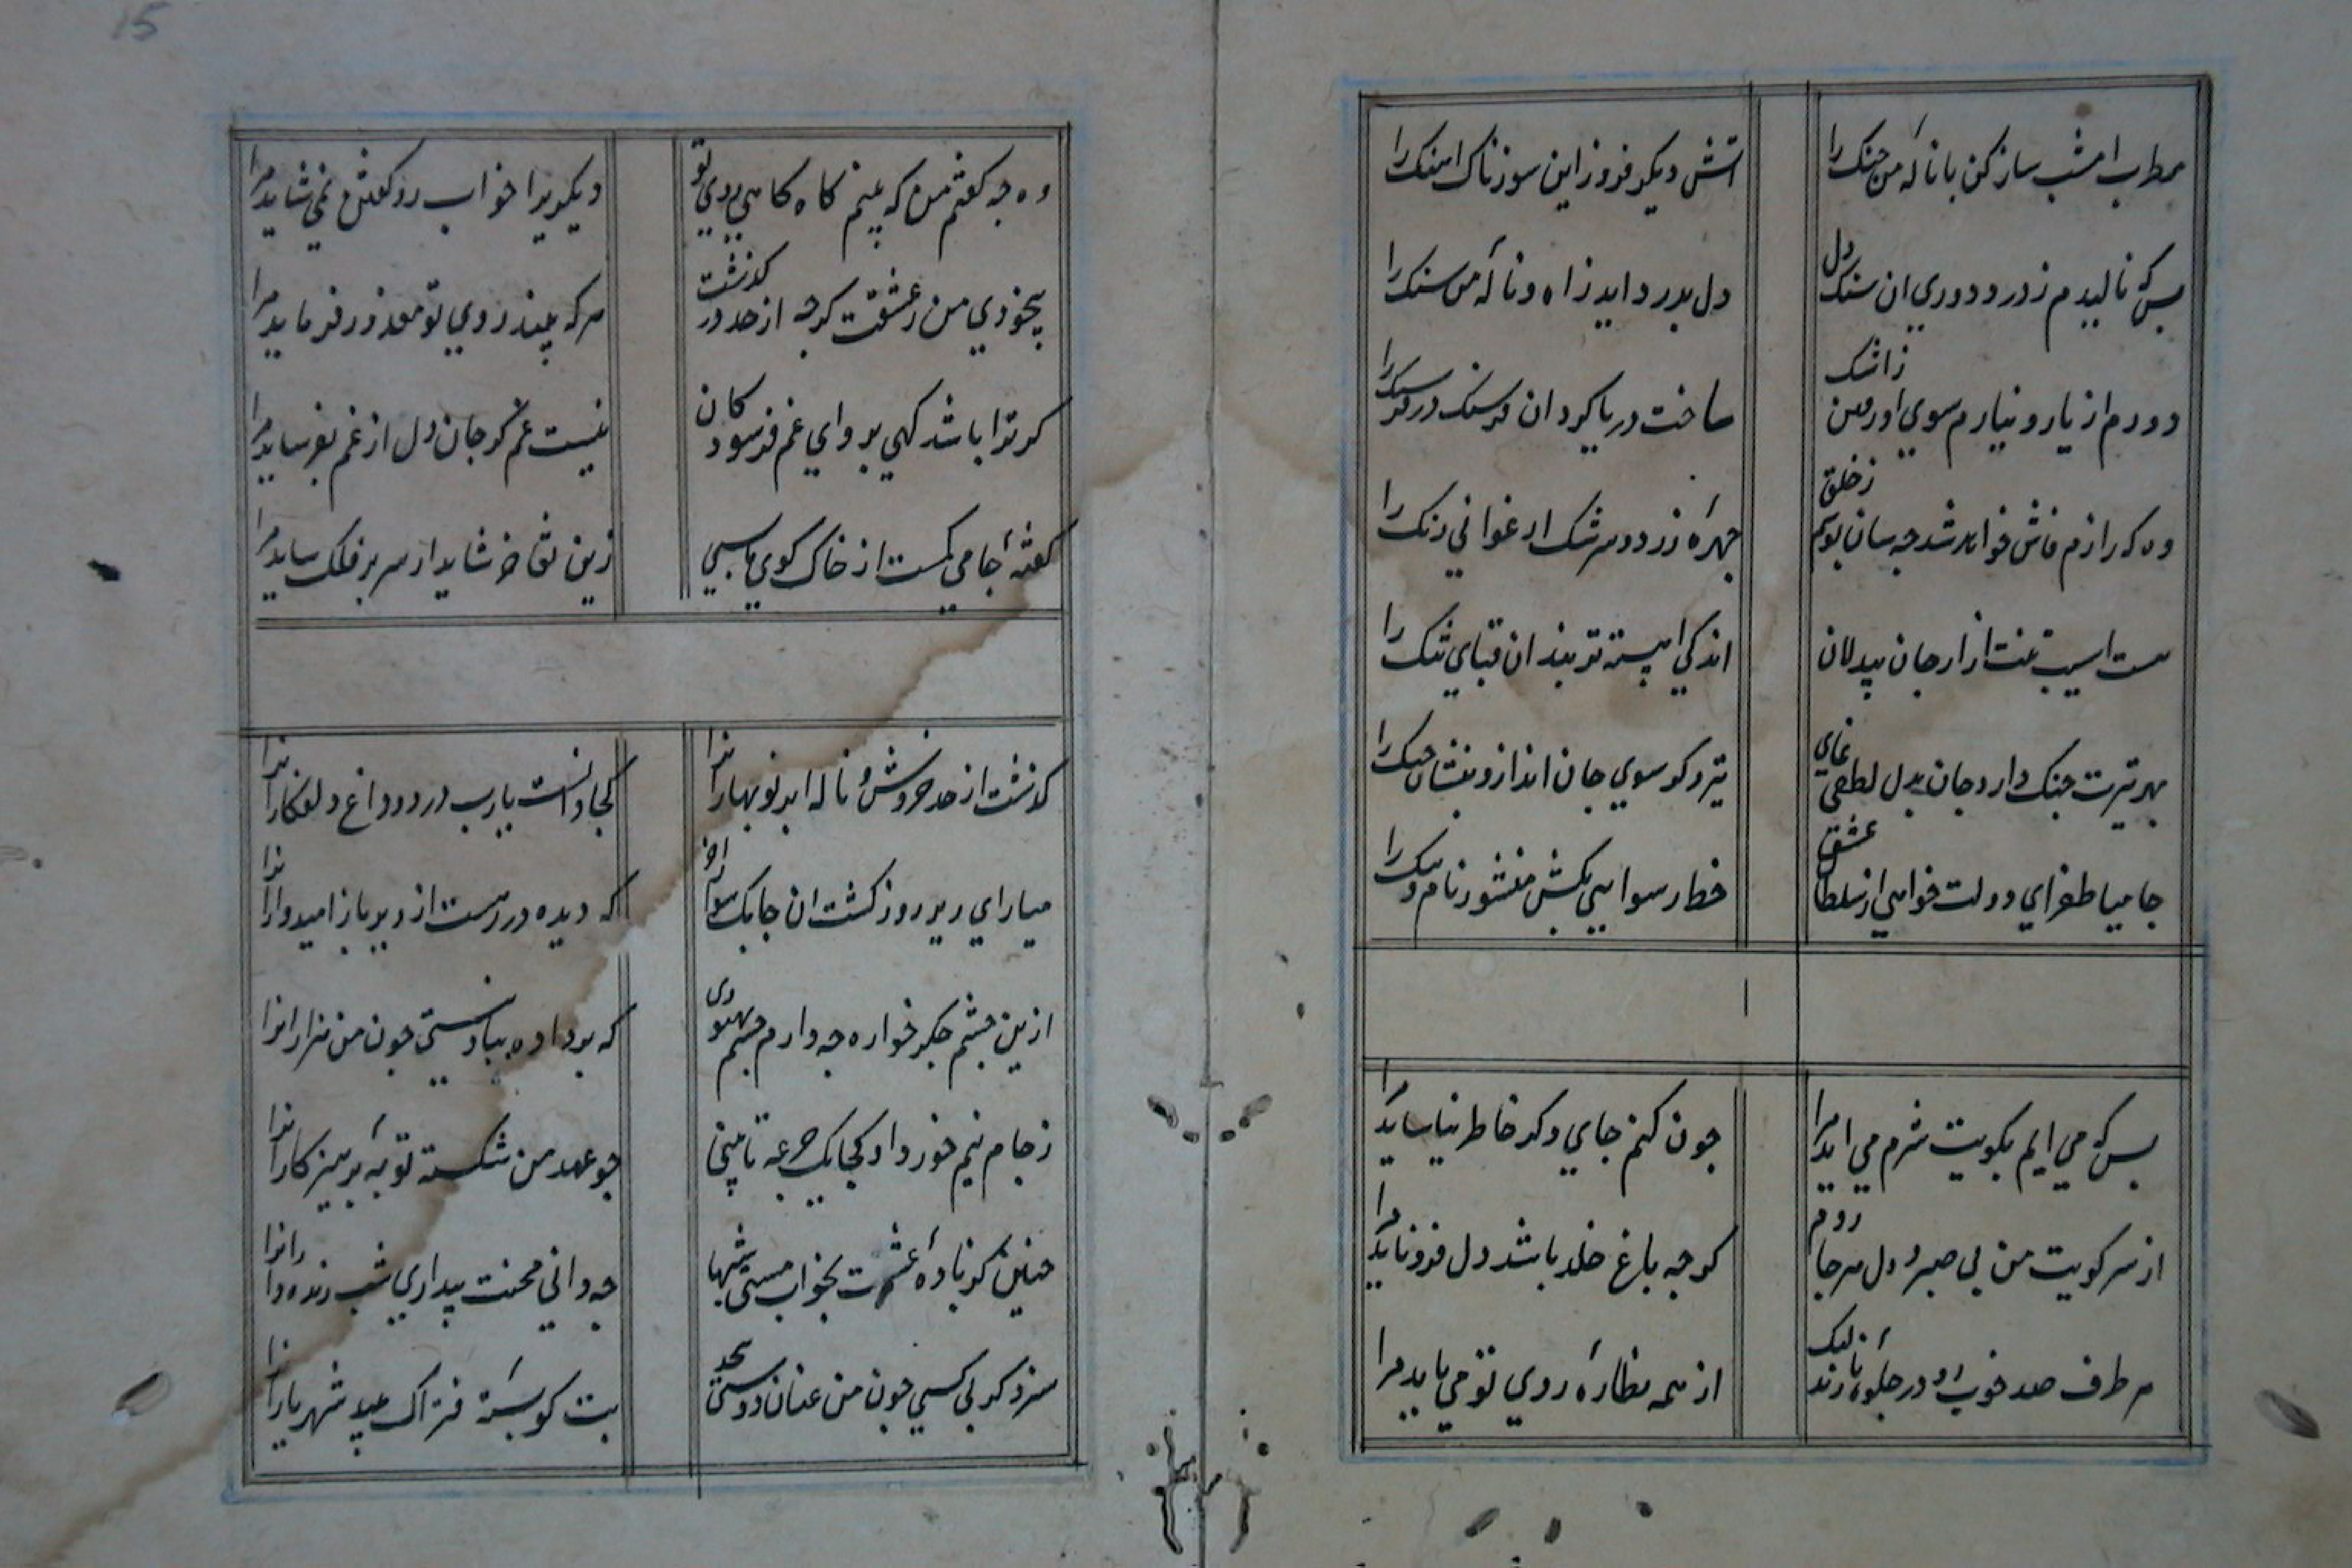 15
مطرب امشب ساز کن با نالهٔ من چنک را
اتش دیکر فروز این سوزناک اهنک را
بس که نالیدم ز درد دوری ان سنک دل
دل بدرد اید ز اه و نالهٔ من سنک را
دورم از یار و نیارم سوی او رفتن ز اشک
ساخت دریا کرد ان فرسنک در فرسنک را
وه که رازم فاش خواهد شد چه سان پوشم ز خلق
چهرهٔ زرد و سرشک ارغوانی رنک را
هست اسیب تنت ازار جان بیدلان
اندکی اهسته تر بند ان قبای تنک را
بهر تیرت جنک دارد جان بدل لطفی نمای
تیر دکر سوی جان انداز و بنشان جنک را
جامیا طغرای دولت خواهی از سلطان عشق
خط رسوایی بکش منشور نام و ننک را
بس که می ایم بکویت شرم می اید مرا
چون کنم جای دکر خاطر نیاساید مرا
از سر کویت من بی صبر و دل هر جا روم
کرچه باغ خلد باشد دل فرو ناید مرا
هر طرف صد خوب رو در جلوهٔ نازند لیک
از همه نظارهٔ روی تو می باید مرا
وه چه کفتم من که بینم کاه کاهی روی تو
دیکر یرا خواب رو کفتن نمی شاید مرا
بیخودی من ز عشقت کرچه از حد در کذشت
هر که بیند روی تو معذور فرماید مرا
کر ترا باشد کهی پروای غم فرسودکان
نیست غم کر جان و دل از غم بفرساید مرا
کفتهٔ جامی کمست از خاک کوی ما بسی
زین تفاخر شاید ار سر بر فلک ساید مرا
کذشت از حد خروش و ناله ابر نوبهارانرا
کجا دانست یارب درد و داغ دلفکارانرا
میارای ریر روز کشت ان چابک سوارم را
که دیده در رهست از دیر باز امیدوارانرا
ازین چشم جکر خواره چه دارم چشم بهبودی
که بر داده بباد هستی چون من هزارانرا
ز جام نیم خورد او کجا یک جرعه تا بینی
چو عهد من شکسته توبهٔ پرهیزکارانرا
چنین کز بادهٔ عشرت بخواب مستی شبها
چه دانی محنت بیداری شب زنده دارانرا
سزد کر بی کسی چون من عنان دوستی پیچد
بت کو بستهٔ فتراک صید شهریارانرا